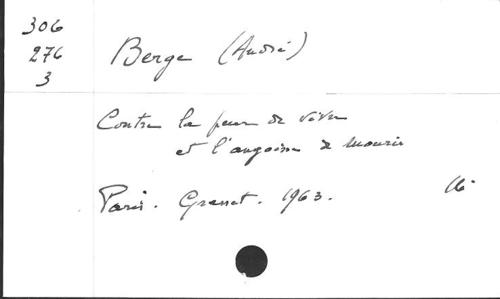 306
276
3
Berge (André)
Contre la peur de vivre
et l'angoisse de mourir
Paris. Grasset. 1963.